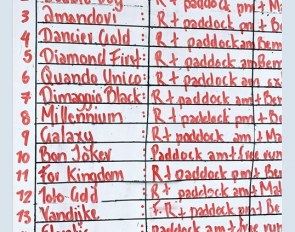 3 Amandovi : R + paddock pm + Ma
4 Dancier Gold : R + paddock am Ben
5 Diamond First : R + paddock am + Ben
6 Quando Unico : R + paddock am sx
7 Dimaggio Black : R + paddock am + Ber
8 Millennium : R + paddock pm + Be
9 Galaxy : R + paddock am + Ma
10 Bon Joker : Paddock am + free run
11 For Kingdom : R + paddock pm + Be
12 Toto Gad : R + paddock am + Mad
13 Vandijke : R + paddock pm + Be
paddock am + free run